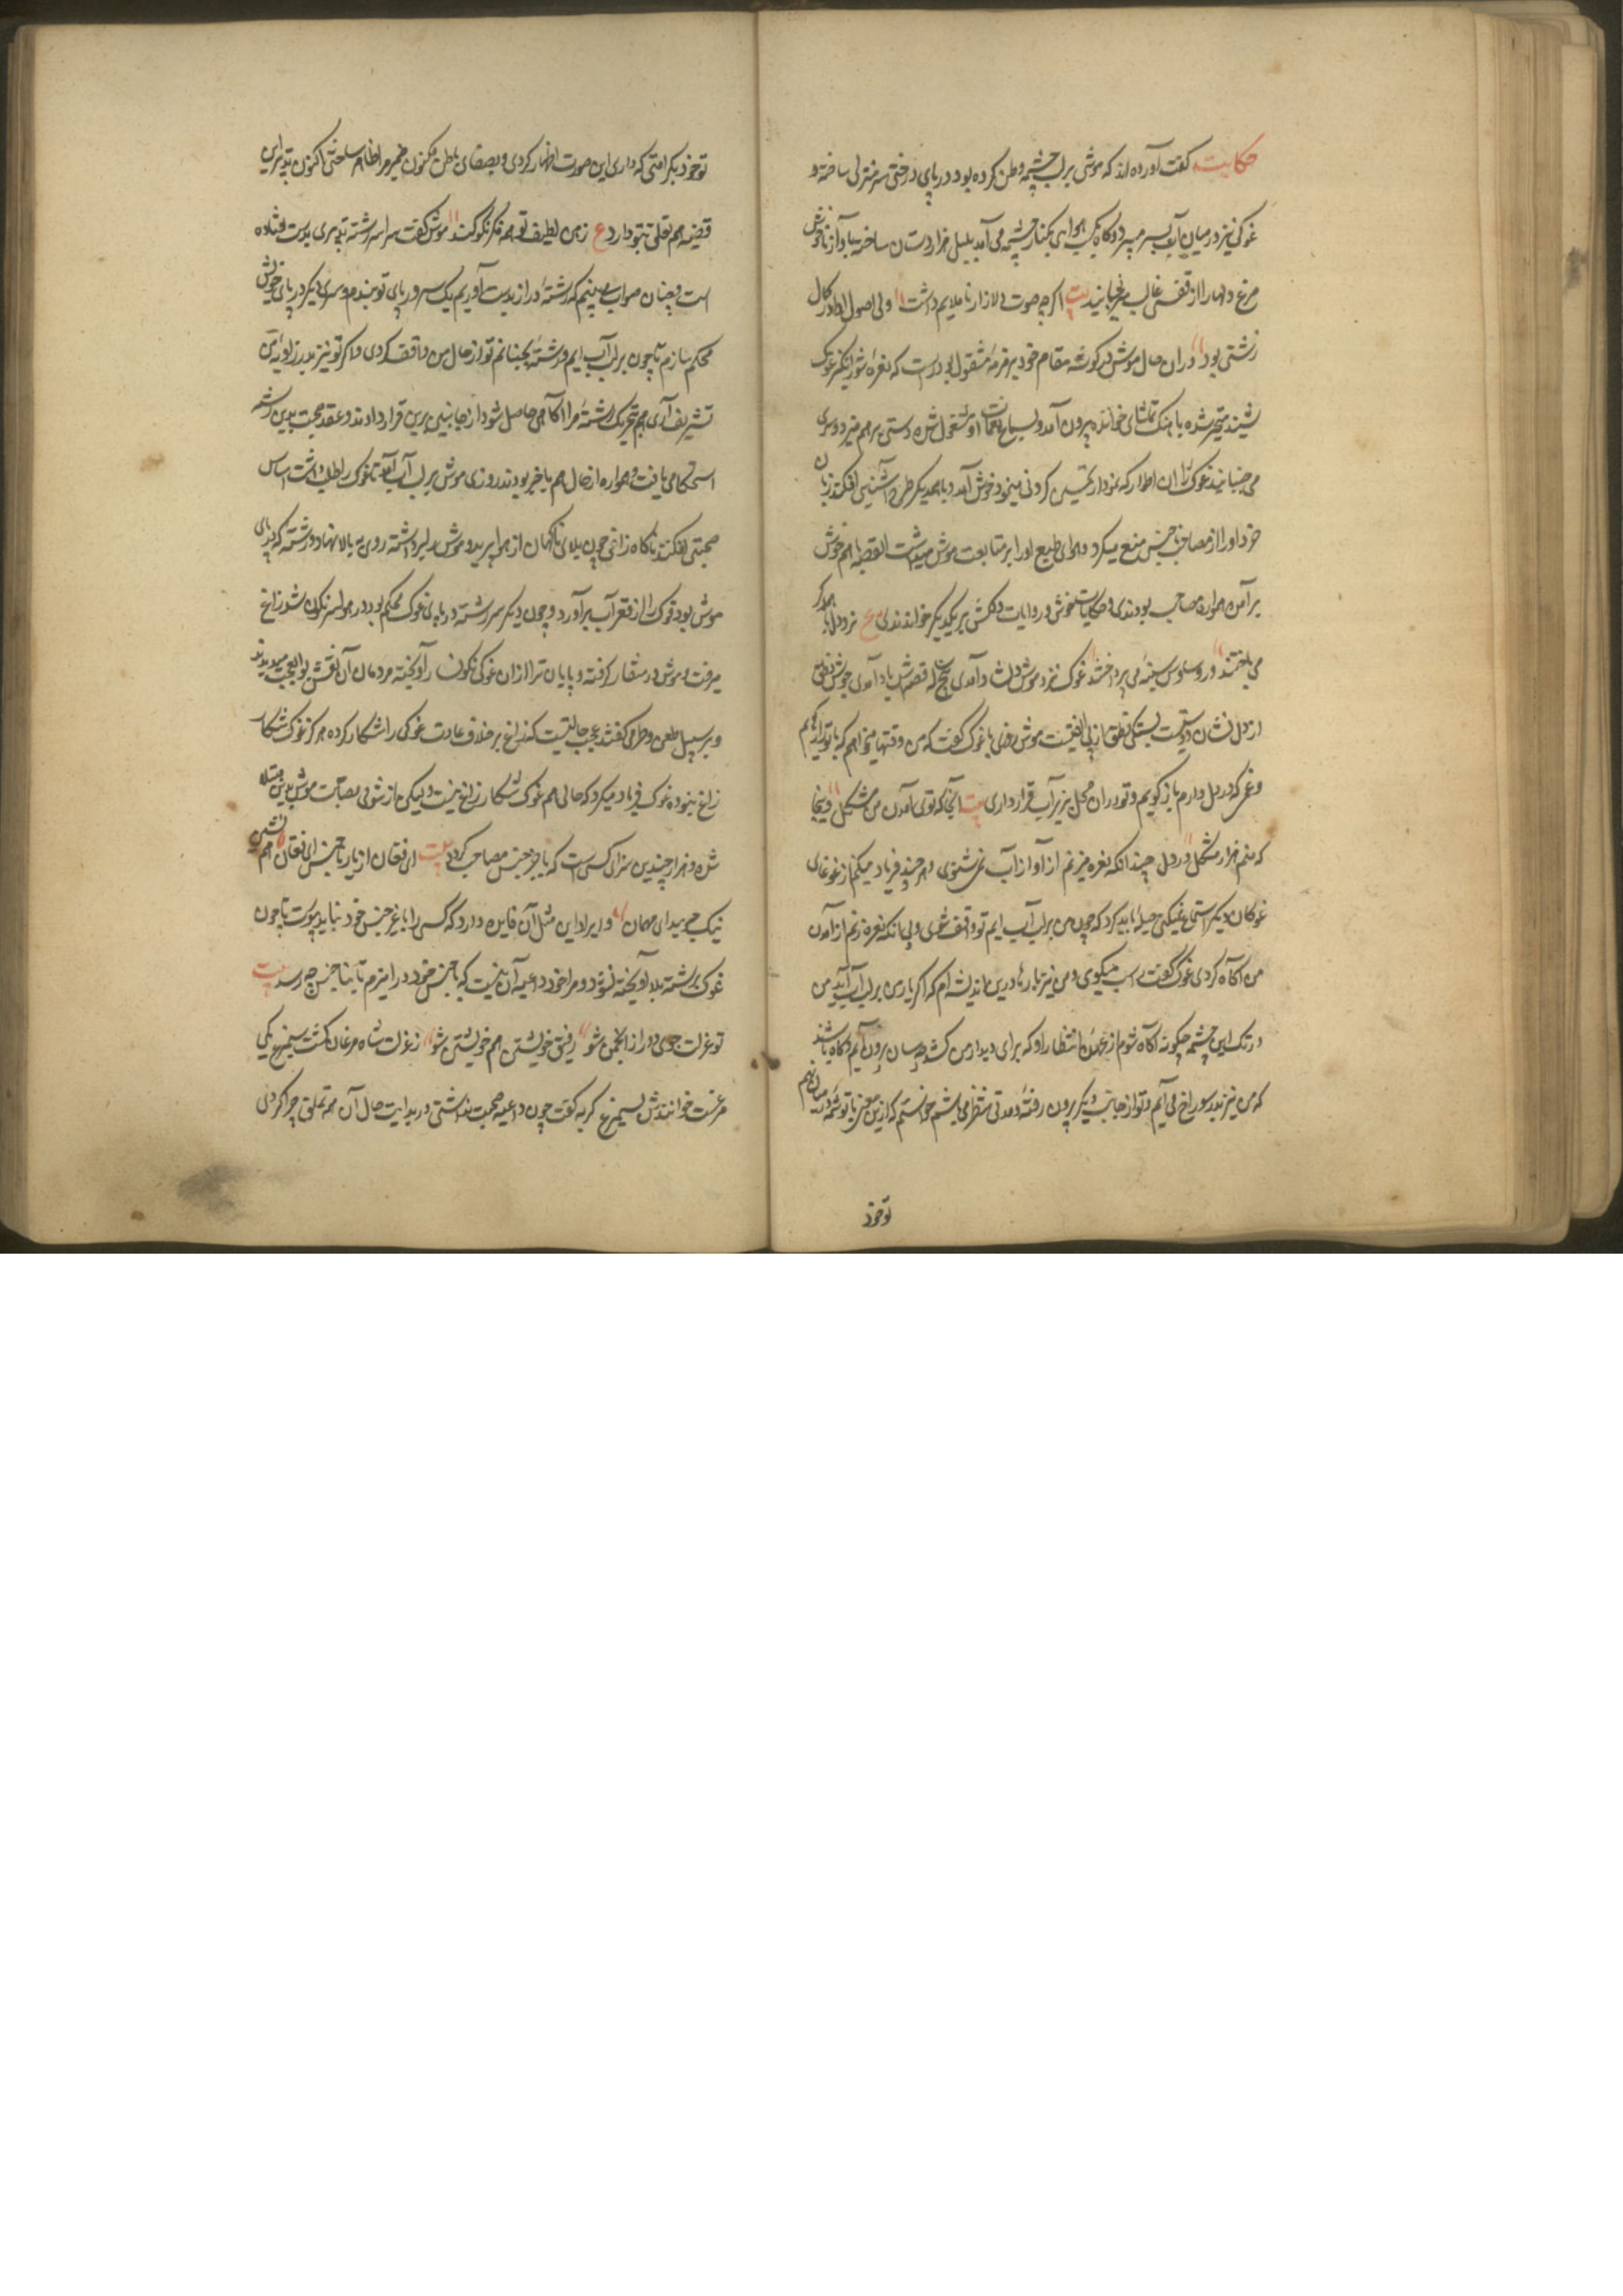 حکایت گفت آورده اند که موشی بر لب چشمه وطن کرده بود و در پای درختی سر منزلی ساخته و
غوکی نیز در میان آب بسر میبرد و گاه گاه بهوای بکنار چشمه می آمد بلبل هزار دستان ساخته بآواز ناخوش
مرغ دلها را از قفس غالب میرنجانید بیت اگر چه صوت دلازار ناملایم داشت ولی اصول در کمال
زشتی بود در آن حال موش در گوشه مقام خود بزمزمه مشغول بوده است که نعره شورانگیز غوک
شنید متحیر شده باهنگ تماشای خواننده بیرون آمد و بسماع نغمات او مشغول شده دستی بر هم میزد و سری
می جنبانید غوک را آن اطوار که نمودار تحسین کردنی مینمود خوش آمد و با هم دیگر طرح آشنایی افکند زبان
خرد او را از مصاحبت ناجنس منع میکرد و هوای طبع او را بر متابعت موش میداشت القصه با هم خوش
بر آمده همواره مصاحب بودندی و حکایات خوش و روایات دلکش بر یکدیگر خواندندی ع نرد دل با همدگر
می باختند و ز وساوس سینه می پرداختند غوک نزد موش شاد آمدی پنج ساله قصه اش یاد آمدی جوش نطق
از دل نشان دوستیست بستگی نطق از بی الفتیست موش روزی با غوک گفت که من وقتها میخواهم که با تو راز گویم
و غمی که در دل دارم باز گویم و تو در آن محل بزیر آب قرار داری بیت آنجا که توی آمدن من مشکل و ینجا
که منم هزار مشکل در دل چندانکه نعره میزنم از آواز آب نمی شنوی و هر چند فریاد میکنم از غوغای
غوکان دیگر استماع نمیکنی حیله باید کرد که چون من بر لب آب ایم تو واقف شوی و بی آنکه نعره زنم از آمدن
من آگاه گردی غوک گفت راست میگوی و من نیز بارها درین اندیشه ام که اگر یار من بر لب آب آید من
در تک این چشمه چگونه آگاه شوم از عهده انتظار او که برای دیدار من کشد چسان بیرون آیم و گاه باشد
که من نیز بدر سوراخ می آیم و تو از جانب دیگر بیرون رفته و مدتی منتظر می باشم خواستم که ازین معنی با تو شمه در میان نهم
تو خود
تو خود بکرامتی که داری این صورت اظهار کردی و بصفای باطن مکنون ضمیر مرا ظاهر ساختی اکنون تدبیر این
قضیه هم تعلق بتو دارد ع زهن لطیف تو همه فکر نکو کند موش گفت سر رشته تدبیری بدست افتاده
است و چنان صواب می بینم که رشته دراز بدست آوریم یک سر در پای تو بندم و سر دیگر در پای خویش
محکم سازم تا چون بر لب آب ایم و رشته بجنبانم تو از حال من واقف گردی و اگر تو نیز بدر زاویه من
تشریف آری هم بتحریک رشته مرا آگاهی حاصل شود از جانبین برین قرار دادند و عقد محبت بدین رشته
استحکامی یافت و همواره از حال هم با خبر بودند روزی موش بر لب آب آمد تا غوک را طلب داشت اساس
صحبتی افکند ناگاه زاغی چون بلای ناگهان از هوا پرید و موش را برداشته روی به بالا نهاد و رشته که در پای
موش بود غوک را از قعر آب بر آورد و چون دیگر سر رشته در پای غوک محکم بود در هوا سر نگون شد زاغ
میرفت و موش در منقار گرفته و پایان تر از آن غوکی نگونسار آویخته مردمان آن نقش بوالعجب میدیدند
و بر سبیل طعن و طنز میگفتند عجب حالتیست که زاغ بر خلاف عادت غوکی را شکار کرده هرگز غوک شکار
زاغ نبوده غوک فریاد میکرد که حالی هم غوک شکار زاغ نیست ولیکن از شومی مصاحبت موش بدین مبتلا
شده و هزار چندین سزای کسی است که با غیر جنس مصاحب گردد بیت ای فغان از یار ناجنس ای فغان هم نشین
نیک جویید ای مهان و ایراد این مثل آن فایده دارد که کسی را با غیر جنس خود نباید پیوست تا چون
غوک برشته بلا آویخته نشود و مرا خود داعیه آن نیست که با جنس خود در امیزم تا بناجنس چه رسد بیت
تو عزلت جوی و دور از انجمن شو رفیق خویشتن هم خویشتن شو ز عزلت شاه مرغان گشت سیمرغ یکی
مرغست خوانندش سیمرغ گربه گفت چون داعیه صحبت نداشتی در بدایت حال آن همه تملق چرا کردی